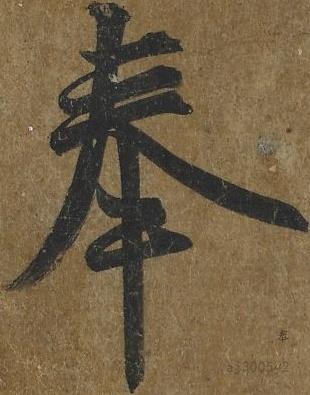 奉
奉
a3300542